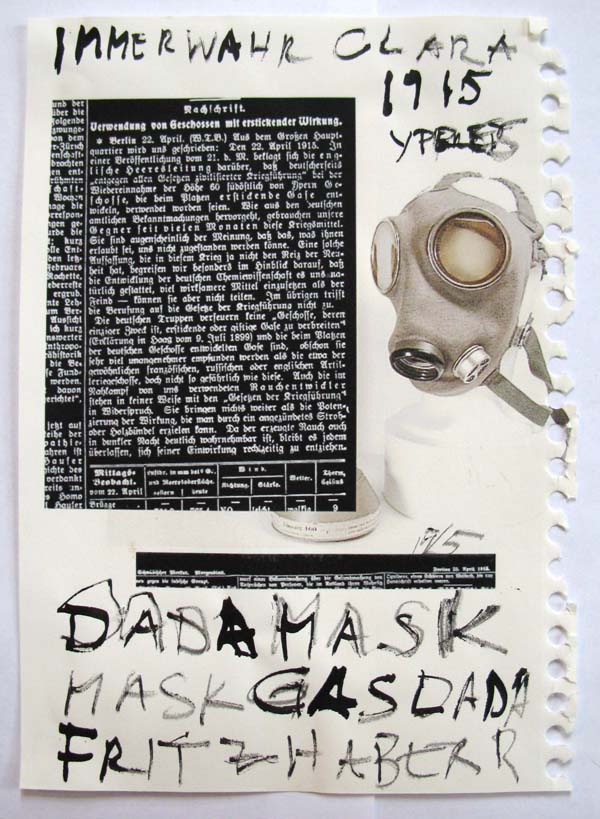 IMMERWAHR CLARA
1915
YPRES
Nachschrift.
Verwendung von Geschossen mit erstickender Wirkung.
* Berlin 22. April. (W.T.B.) Aus dem Großen Haupt-
quartier wird uns geschrieben: Den 22. April 1915. In
einer Veröffentlichung vom 21. d. M. beklagt sich die eng-
lische Heeresleitung darüber, daß deutscherseits
„entgegen allen Gesetzen zivilisierter Kriegführung“ bei der
Wiedereinnahme der Höhe 60 südöstlich von Ypern Ge-
schosse, die beim Platzen erstickende Gase ent-
wickeln, verwendet worden seien. Wie aus den deutschen
amtlichen Bekanntmachungen hervorgeht, gebrauchen unsere
Gegner seit vielen Monaten diese Kriegsmittel.
Sie sind augenscheinlich der Meinung, daß das, was ihnen
erlaubt sei, uns nicht zugestanden werden könne. Eine solche
Auffassung, die in diesem Krieg ja nicht den Reiz der Neu-
heit hat, begreifen wir besonders im Hinblick darauf, daß
die Entwicklung der deutschen Chemiewissenschaft es uns na-
türlich gestattet, viel wirksamere Mittel einzusetzen als der
Feind — können sie aber nicht teilen. Im übrigen trifft
die Berufung auf die Gesetze der Kriegführung nicht zu.
Die deutschen Truppen verfeuern keine „Geschosse, deren
einziger Zweck ist, erstickende oder giftige Gase zu verbreiten“
(Erklärung im Haag vom 9. Juli 1899) und die beim Platzen
der deutschen Geschosse entwickelten Gase sind, obschon sie
sehr viel unangenehmer empfunden werden als die etwa der
gewöhnlichen französischen, russischen oder englischen Artil-
leriegeschosse, doch nicht so gefährlich wie diese. Auch die im
Nahkampf von uns verwendeten Rauchentwickler
stehen in keiner Weise mit den „Gesetzen der Kriegführung“
in Widerspruch. Sie bringen nichts weiter als die Poten-
zierung der Wirkung, die man durch ein angezündetes Stroh-
oder Holzbündel erzielen kann. Da der erzeugte Rauch auch
in dunkler Nacht deutlich wahrnehmbar ist, bleibt es jedem
überlassen, sich seiner Einwirkung rechtzeitig zu entziehen.
Mittags-
Beobacht.
vom 22. April
gestern heute
Wind.
Richtung. Stärke.
Wetter.
Therm.
Celsius
Brügge NO leicht wolkig 9
1915
Schwäbischer Merkur. Morgenblatt.
Freitag 23. April 1915.
DADAMASK
MASKGASDADA
FRITZHABERR